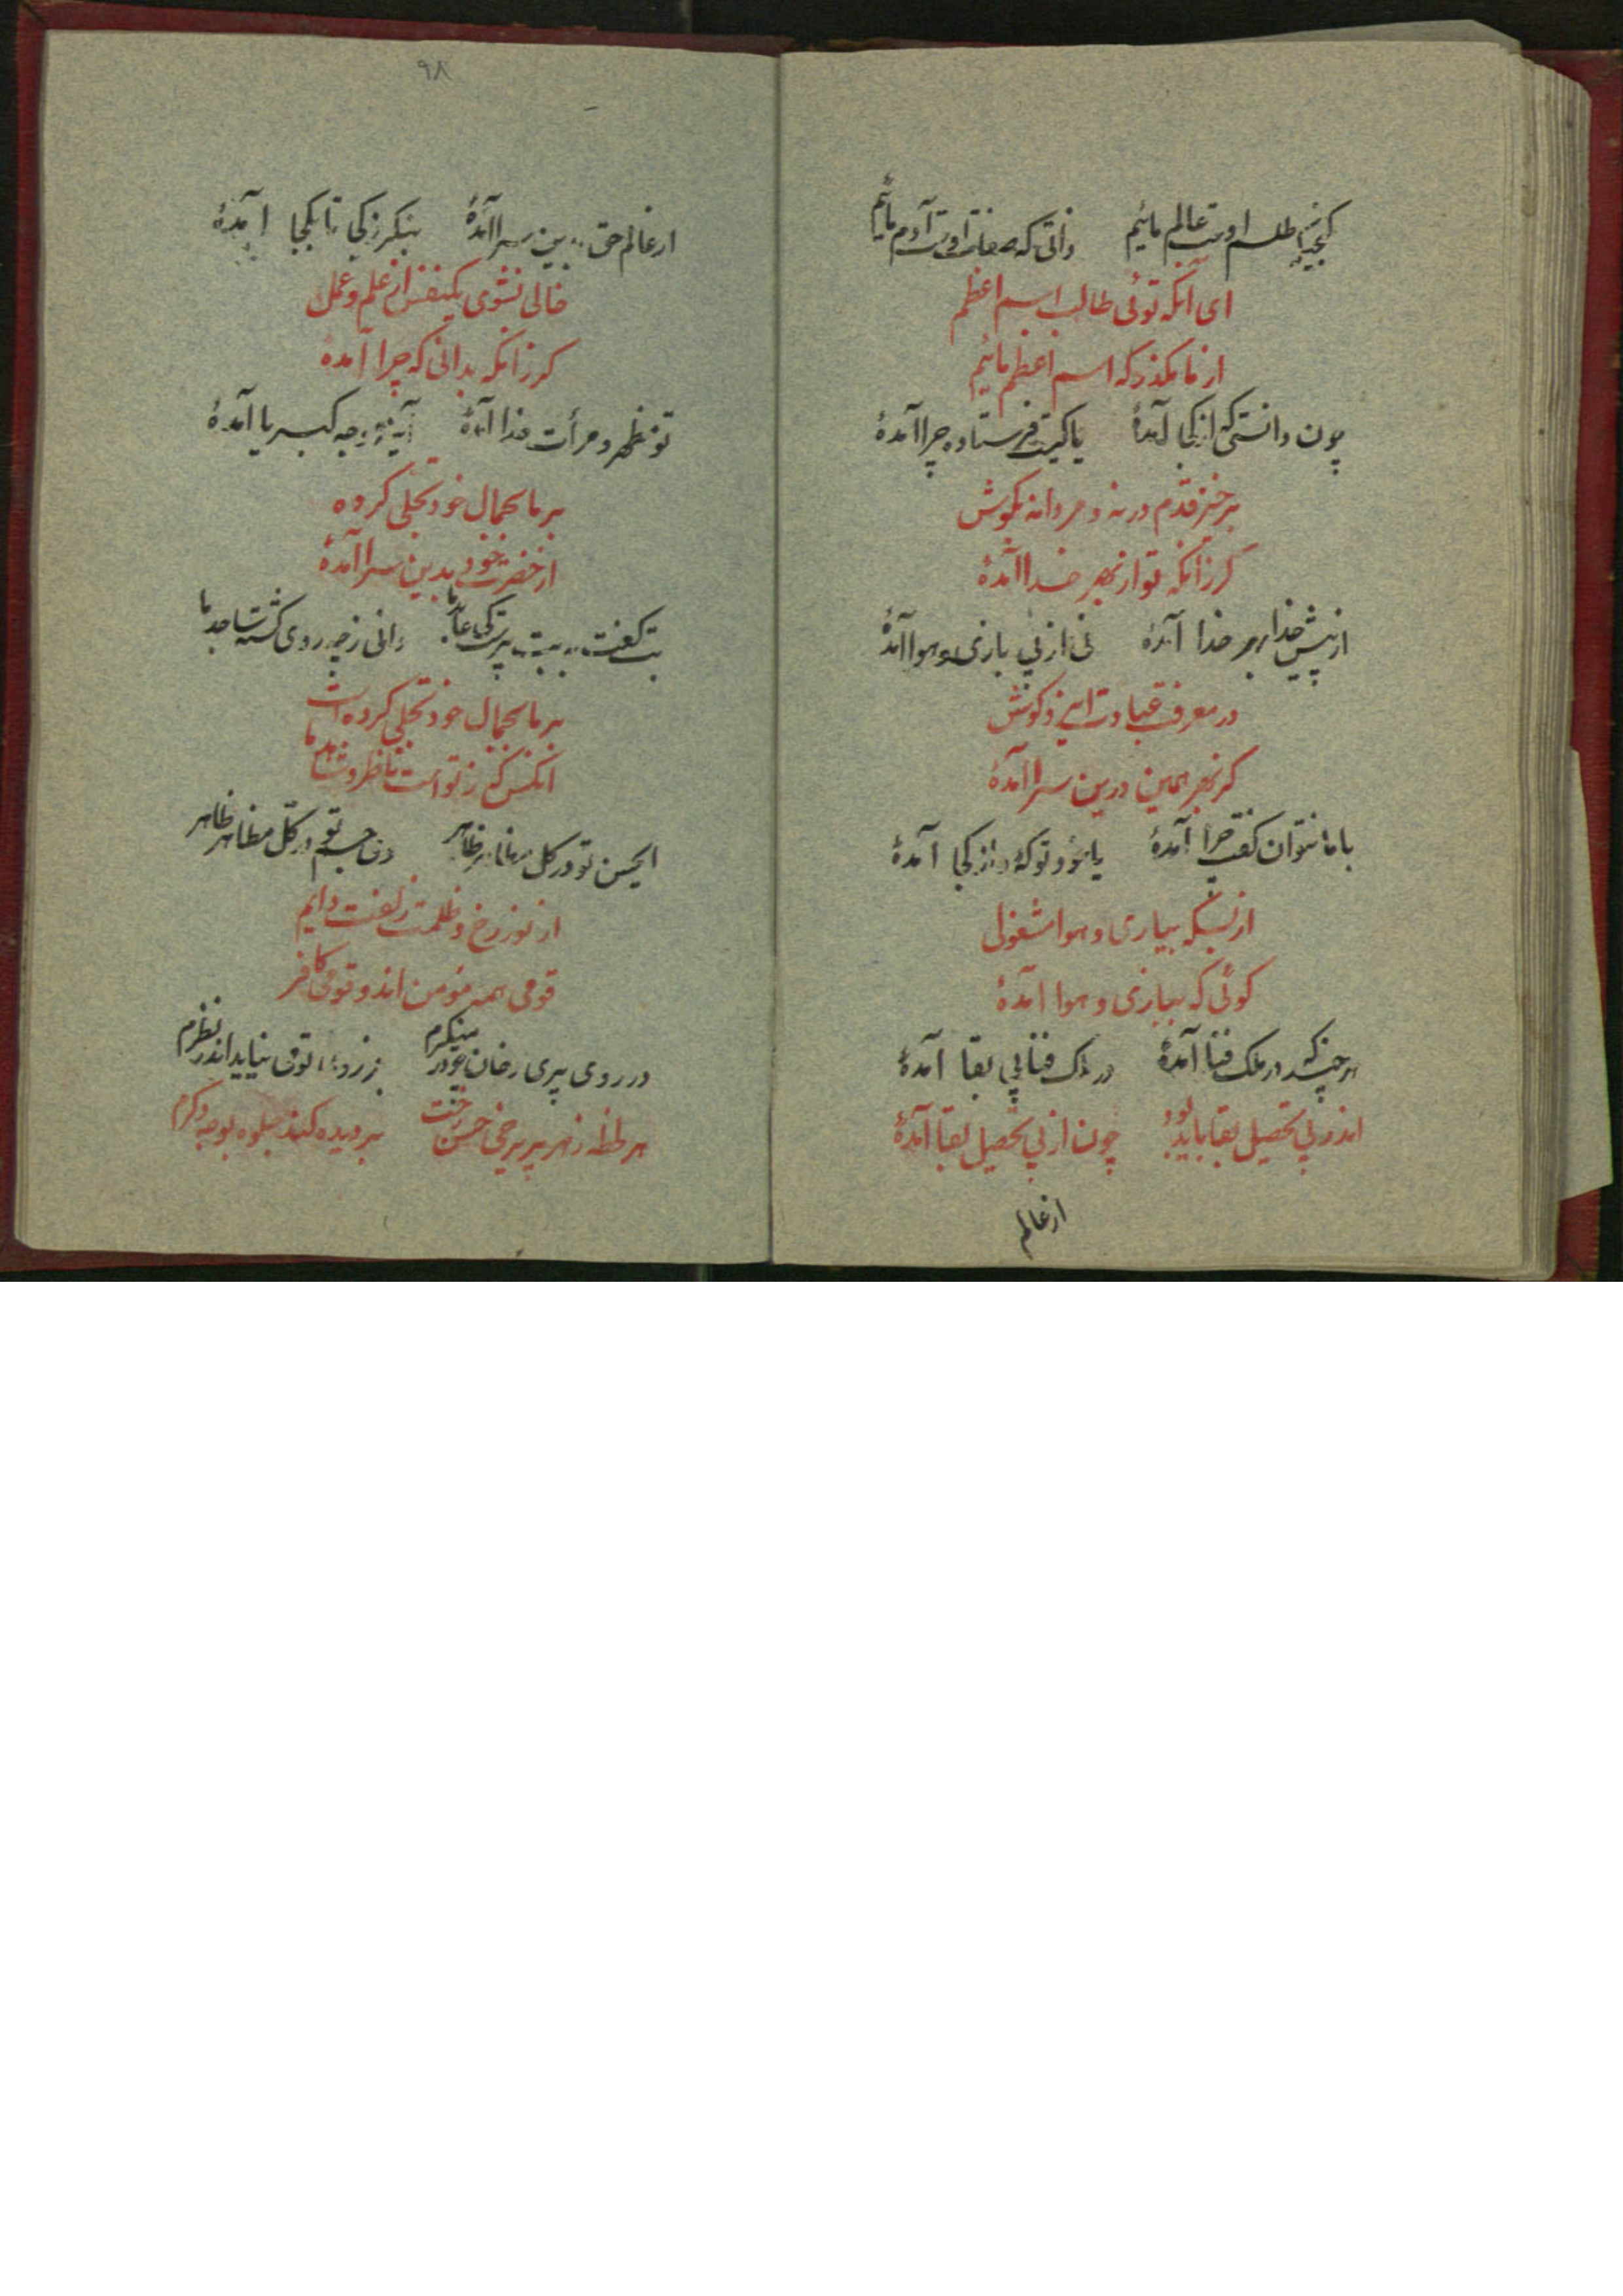 گنجینه طلسم اوست عالم مائیم ذاتی که صفات اوست آدم مائیم
ای آنکه توئی طالب اسم اعظم
از ما مگذر که اسم اعظم مائیم
چون دانستی کز کجا آمدهٔ یا کیت فرستاده چرا آمدهٔ
برخیز قدم در نه و مردانه بکوش
کر زانکه تو از بهر خدا آمدهٔ
از پیش خدا بهر خدا آمدهٔ نی از پی بازی و هوا آمدهٔ
در معرفت عبادت ایزد کوش
کز بهر همین درین سرا آمدهٔ
با ما نتوان گفت چرا آمدهٔ یا خود تو کهٔ و از کجا آمدهٔ
از بسکه ببازی و هوا مشغولی
کوئی که ببازی و هوا آمدهٔ
هر چند که در ملک فنا آمدهٔ در ملک فنا پی بقا آمدهٔ
اندر پی تحصیل بقا باید بود چون از پی تحصیل بقا آمدهٔ
از عالم
۹۸
از عالم حق بدین سرا آمدهٔ بنکر ز کجا تا بکجا آمدهٔ
خالی نشوی یکنفس از علم و عمل
کر زانکه بدانی که چرا آمدهٔ
تو مظهر و مرأت خدا آمدهٔ آینهٔ وجه کبریا آمدهٔ
بر ما بجمال خود تجلی کرده
از حضرت خود بدین سرا آمدهٔ
بت گفت به بت پرست کی عابد ما دانی ز چه روی گشتهٔ ساجد ما
بر ما بجمال خود تجلی کرده است
آنکس که ز تو است ناظر و شاهد ما
ای حسن تو در کل مظاهر ظاهر وی چشم تو در کل مظاهر ناظر
از نور رخ و ظلمت زلفت دایم
قومی همه مؤمن اند و قومی کافر
در روی پری رخان چو در مینکرم جز روی تو می نیاید اندر نظرم
هر لحظه ز هر پریرخی حسن رخت بر دیده کند جلوه بوجه دکرم